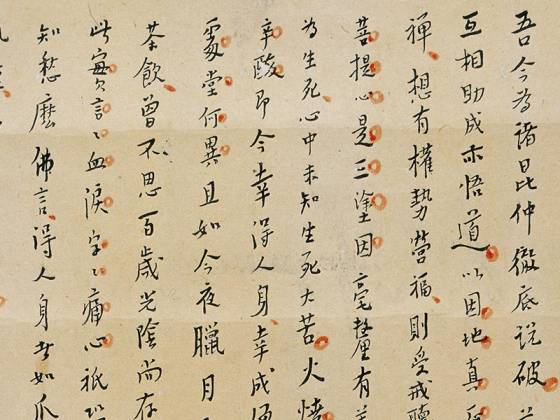 吾今為諸昆仲徹底説破
互相助成亦悟道以因地真
禅想有權勢營福則受戒
菩提心是三塗因毫釐有
為生死心中未知生死大苦火
辛酸即今幸得人身幸成
霎堂何異且如今夜臘月
茶飲曾不思百歳光陰尚存
此實言言血淚字字痛心祇
知愁麽佛言得人身者如爪